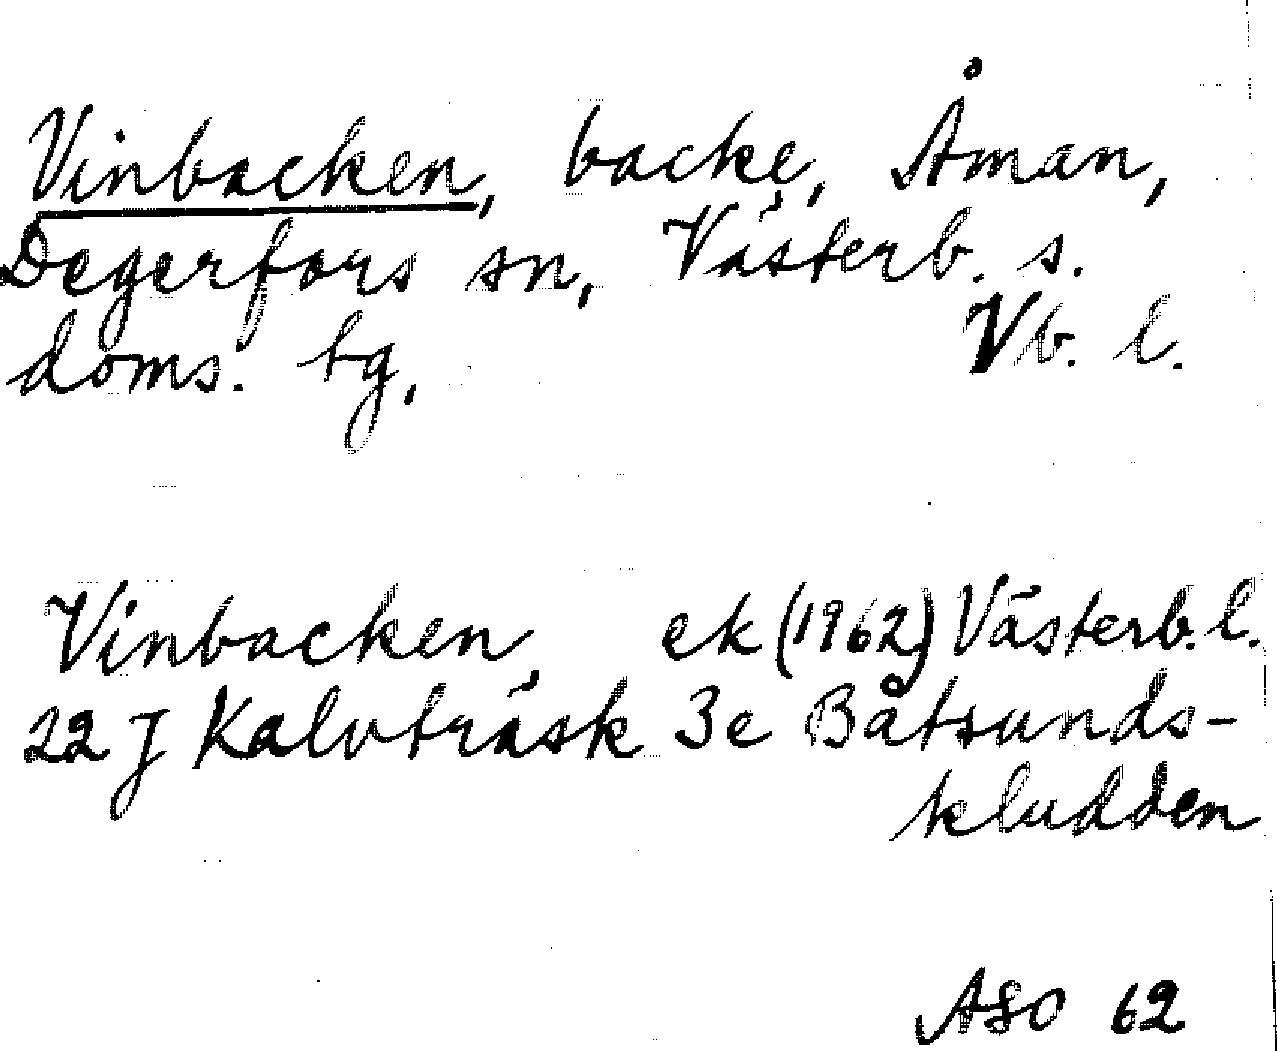 Vinbacken, backe, Åman,
Degerfors sn, Västerb. s.
doms. tg, Vb. l.
Vinbacken, ek (1962) Västerb. l.
22 J Kalvträsk 3e Båtsunds-
kludden
ASO 62